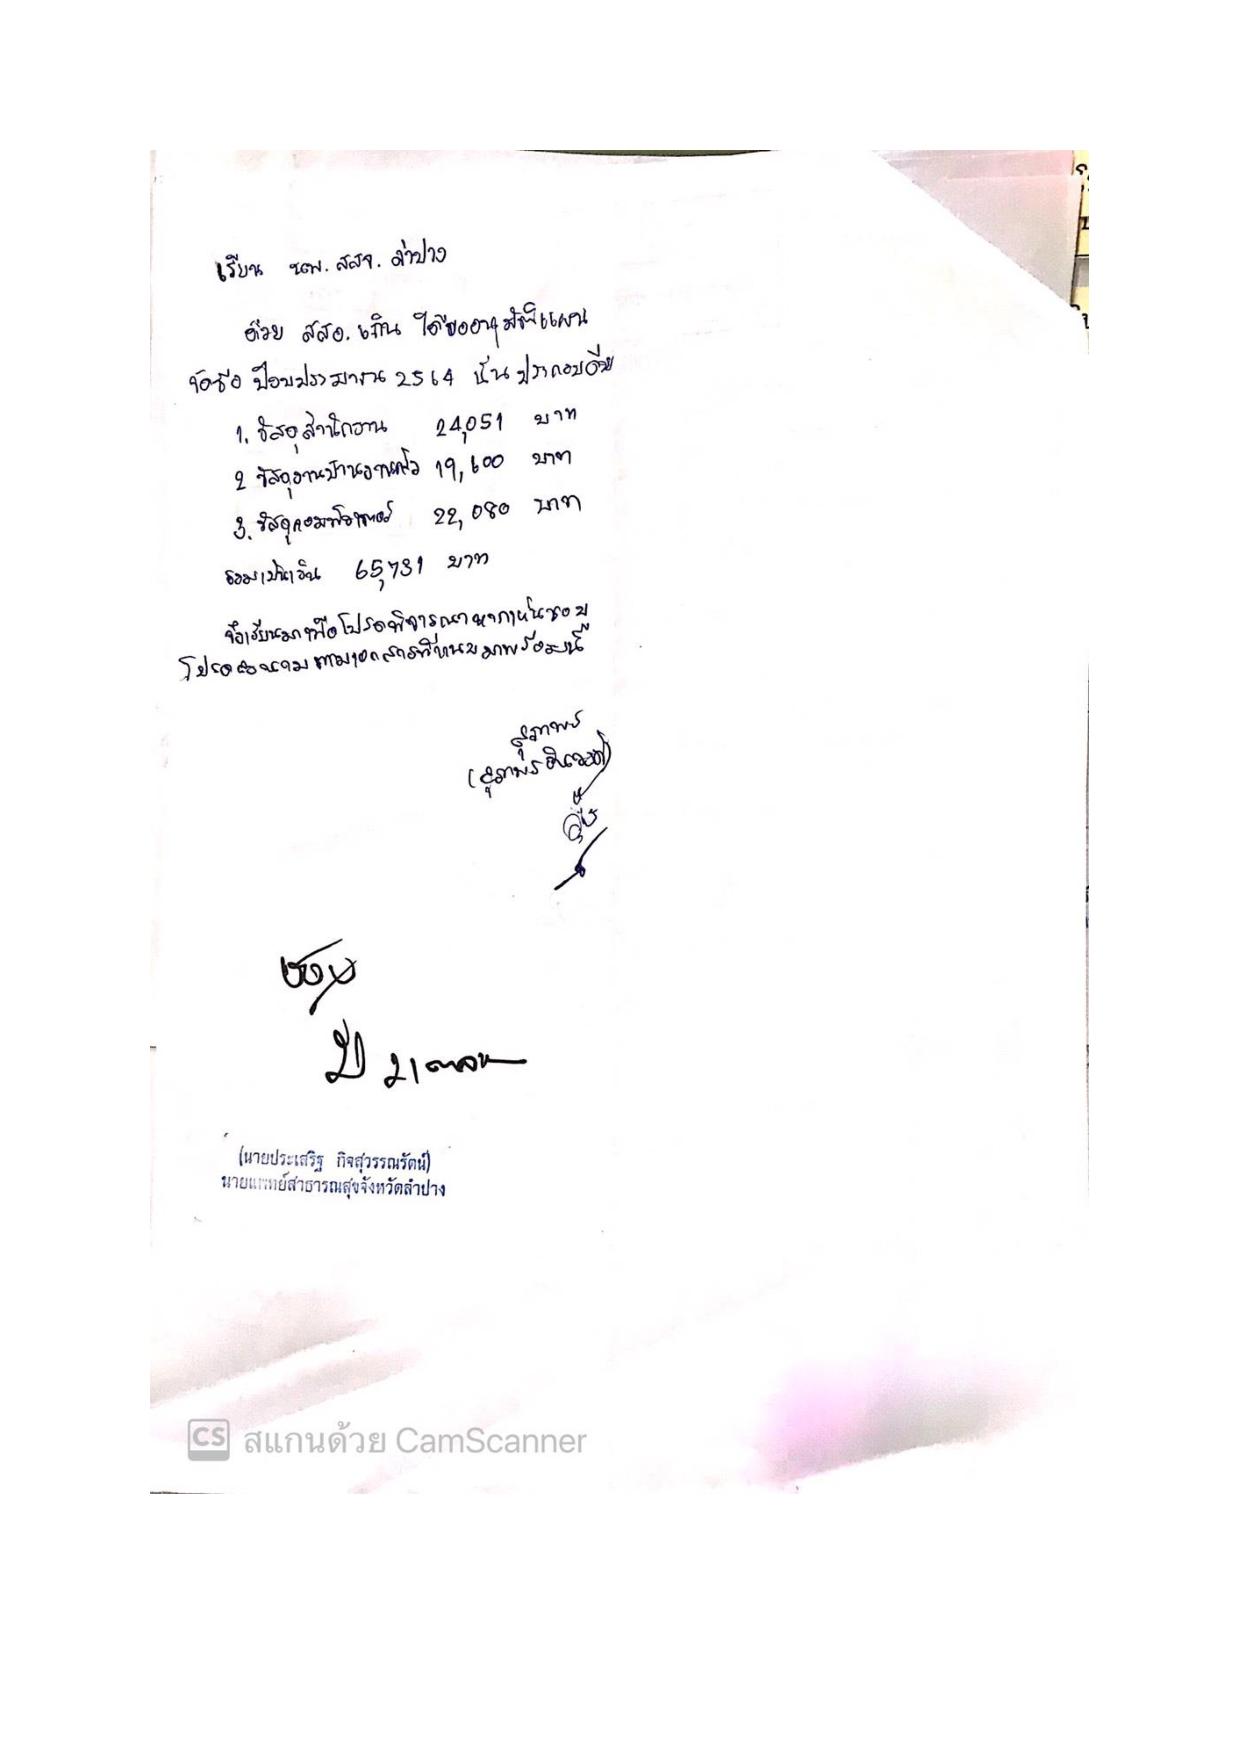 เรียน นพ. สสจ. ลำปาง
ด้วย สสอ. เถิน ได้ขออนุมัติแผน
จัดซื้อ ปีงบประมาณ 2564 นั้น ประกอบด้วย
1. วัสดุสำนักงาน 24,051 บาท
2 วัสดุงานบ้านงานครัว 19,600 บาท
3. วัสดุคอมพิวเตอร์ 22,080 บาท
รวมเป็นเงิน 65,731 บาท
จึงเรียนมาเพื่อโปรดพิจารณาหากเห็นชอบ
โปรดลงนามตามเอกสารที่แนบมาพร้อมนี้
สุภาพร
(สุภาพร
(นายประเสริฐ กิจสุวรรณรัตน์)
นายแพทย์สาธารณสุขจังหวัดลำปาง
CS สแกนด้วย CamScanner